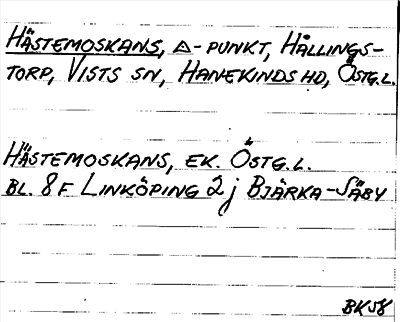 HÄSTEMOSKANS, △-PUNKT, HÅLLINGS-
TORP, VISTS SN, HANEKINDS HD, ÖSTG.L.
HÄSTEMOSKANS, EK. ÖSTG.L.
BL. 8 F LINKÖPING 2 j BJÄRKA-SÄBY
BK58